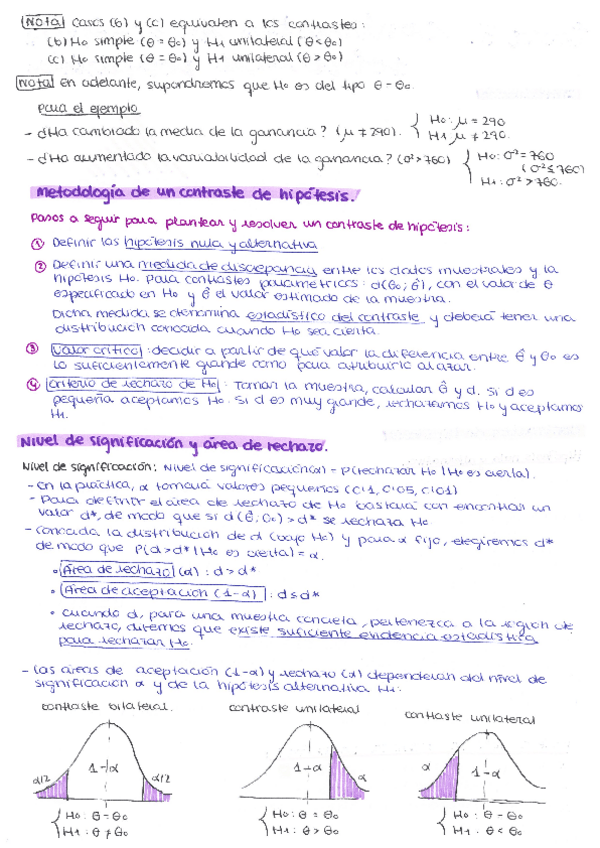 Nota Casos (b) y (c) equivalen a los contrastes:
(b) H₀ simple (θ = θ₀) y H₁ unilateral (θ < θ₀)
(c) H₀ simple (θ = θ₀) y H₁ unilateral (θ > θ₀)
Nota En adelante, supondremos que H₀ es del tipo θ = θ₀.
Para el ejemplo
- ¿Ha cambiado la media de la ganancia? (μ ≠ 290). { H₀: μ = 290
H₁: μ ≠ 290.
- ¿Ha aumentado la variabilidad de la ganancia? (σ² > 760) { H₀: σ² = 760
(σ² ≤ 760)
H₁: σ² > 760.
Metodología de un contraste de hipótesis.
Pasos a seguir para plantear y resolver un contraste de hipótesis:
① Definir las hipótesis nula y alternativa
② Definir una medida de discrepancia entre los datos muestrales y la
hipótesis H₀. Para contrastes paramétricos: d(θ₀; θ̂), con el valor de θ
especificado en H₀ y θ̂ el valor estimado de la muestra.
Dicha medida se denomina estadístico del contraste y deberá tener una
distribución conocida cuando H₀ sea cierta.
③ Valor crítico: decidir a partir de qué valor la diferencia entre θ̂ y θ₀ es
lo suficientemente grande como para atribuirlo al azar.
④ Criterio de rechazo de H₀: Tomar la muestra, calcular θ̂ y d. Si d es
pequeña aceptamos H₀. Si d es muy grande, rechazamos H₀ y aceptamos
H₁.
Nivel de significación y área de rechazo.
Nivel de significación: Nivel de significación(α) = P(rechazar H₀ | H₀ es cierta).
- En la práctica, α tomará valores pequeños (0'1, 0'05, 0'01)
- Para definir el área de rechazo de H₀ bastará con encontrar un
valor d*, de modo que si d(θ̂, θ₀) > d* se rechaza H₀
- Conocida la distribución de d (bajo H₀) y para α fijo, elegiremos d*
de modo que P(d > d* | H₀ es cierta) = α.
• Área de rechazo (α): d > d*
• Área de aceptación (1-α): d ≤ d*
• Cuando d, para una muestra concreta, pertenezca a la región de
rechazo, diremos que existe suficiente evidencia estadística
para rechazar H₀.
- Las áreas de aceptación (1-α) y rechazo (α) dependerán del nivel de
significación α y de la hipótesis alternativa H₁:
contraste bilateral. contraste unilateral contraste unilateral
α/2 1-α α/2 1-α α α 1-α
{ H₀: θ = θ₀ { H₀: θ = θ₀ { H₀: θ = θ₀
H₁: θ ≠ θ₀ H₁: θ > θ₀ H₁: θ < θ₀